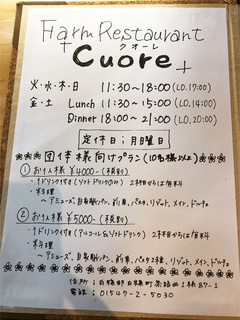 Farm Restaurant
クオーレ
Cuore
火・水・木・日 11:30~18:00 (LO.17:00)
金・土 Lunch 11:30~15:00 (LO.14:00)
Dinner 18:00~21:00 (LO.20:00)
定休日；月曜日
団体様向けプラン (10名様以上)
① お1人様 ¥4000-(税別)
・1ドリンク付き (ソフトドリンクのみ) 2杯目からは有料
・料理
~アミューズ、自家製パン、前菜、パスタ、リゾット、メイン、ドルチェ
② お1人様 ¥5000-(税別)
・1ドリンク付き (アルコール&ソフトドリンク) 2杯目からは有料
・料理
~アミューズ、自家製パン、前菜、パスタ2種、リゾット、メイン、ドルチェ
住所；白糠郡白糠町茶路西1線87-1
電話；01547-2-5030